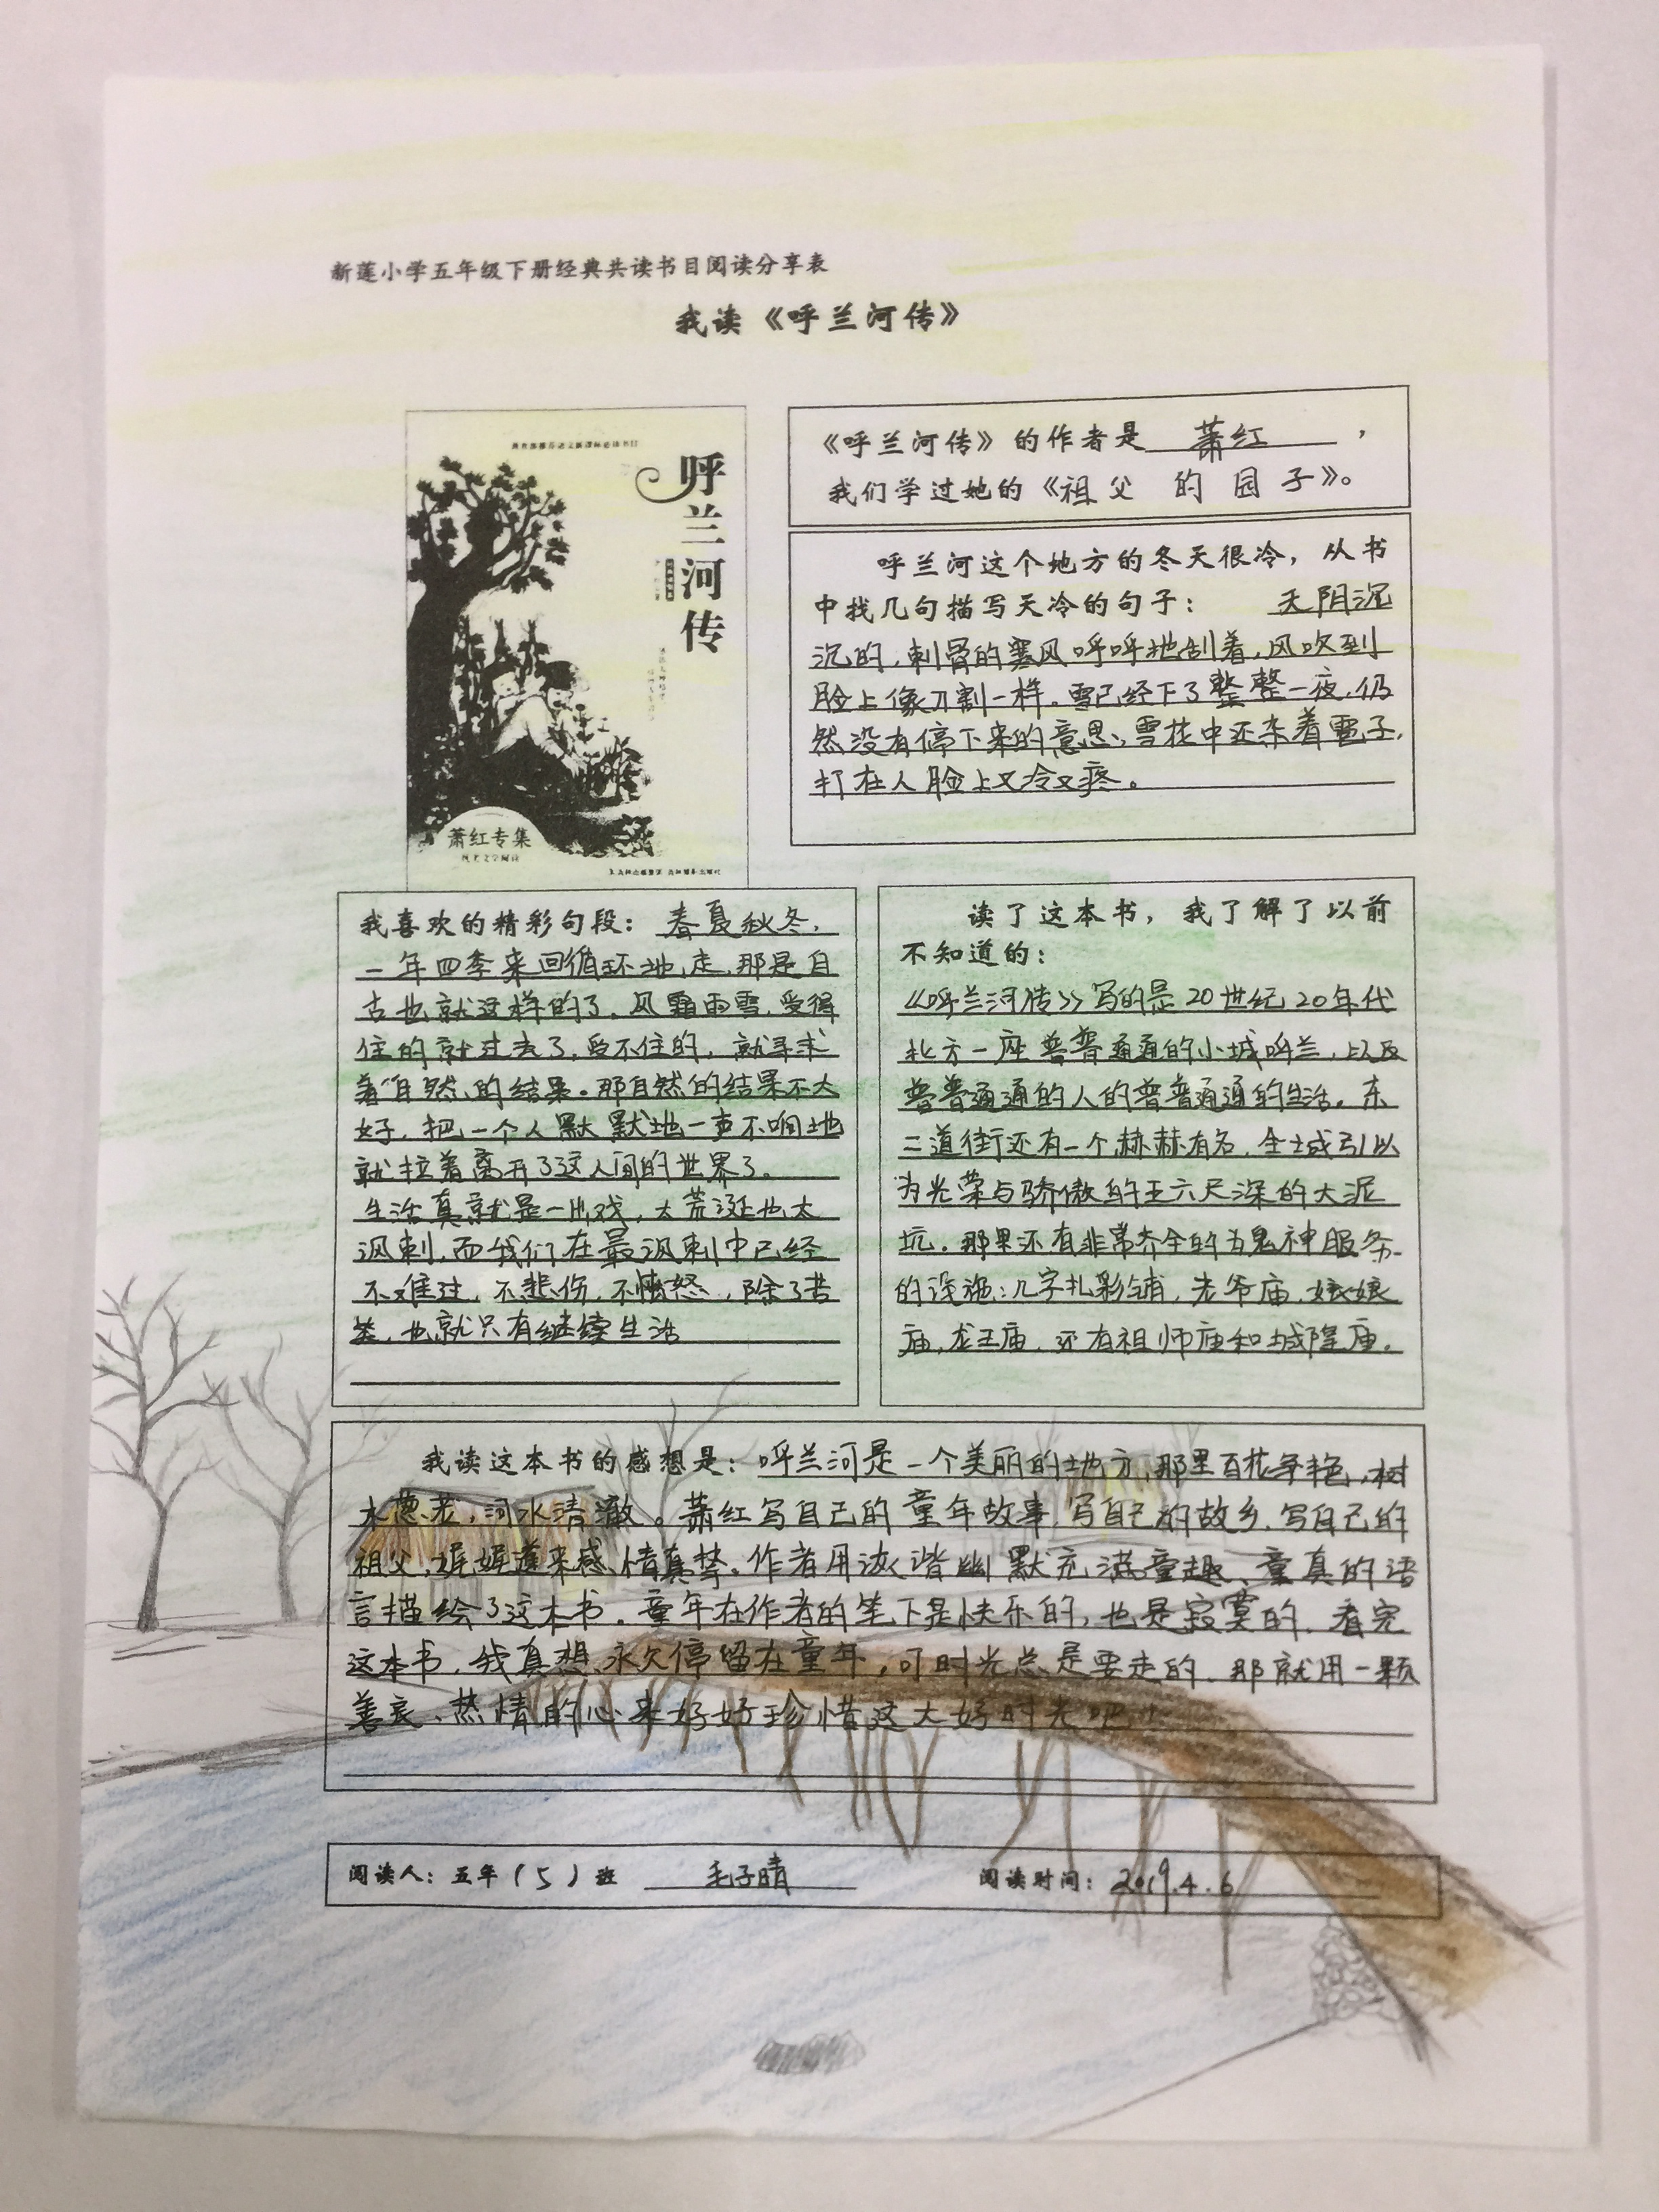 新莲小学五年级下册经典共读书目阅读分享表
我读《呼兰河传》
呼兰河传
萧红专集
《呼兰河传》的作者是 萧红 ，
我们学过她的《祖父 的 园 子》。
呼兰河这个地方的冬天很冷，从书
中找几句描写天冷的句子： 天阴沉
沉的,刺骨的寒风呼呼地刮着,风吹到
脸上像刀割一样。雪已经下了整整一夜,仍
然没有停下来的意思,雪花中还杂着雹子,
打在人脸上又冷又疼。
我喜欢的精彩句段：春夏秋冬,
一年四季来回循环地走,那是自
古也就这样的了。风霜雨雪,受得
住的就过去了,受不住的,就寻求
着自然的结果。那自然的结果不大
好,把一个人默默地一声不响地
就拉着离开了这人间的世界了。
生活真就是一出戏,太荒诞也太
讽刺,而我们在最讽刺中已经
不难过,不悲伤,不愤怒,除了苦
笑,也就只有继续生活
读了这本书，我了解了以前
不知道的：
《呼兰河传》写的是20世纪20年代
北方一座普普通通的小城呼兰,以及
普普通通的人的普普通通的生活。东
二道街还有一个赫赫有名,全城引以
为光荣与骄傲的五六尺深的大泥
坑。那里还有非常齐全的为鬼神服务
的设施:几家扎彩铺,老爷庙,娘娘
庙,龙王庙,还有祖师庙和城隍庙。
我读这本书的感想是：呼兰河是一个美丽的地方,那里百花争艳,树
木葱茏,河水清澈。萧红写自己的童年故事,写自己的故乡,写自己的
祖父,娓娓道来感情真挚。作者用诙谐幽默充满童趣、童真的语
言描绘了这本书。童年在作者的笔下是快乐的,也是寂寞的。看完
这本书,我真想永久停留在童年,可时光总是要走的,那就用一颗
善良、热情的心来好好珍惜这大好时光吧!
阅读人：五年（5）班 毛子晴 阅读时间：2019.4.6